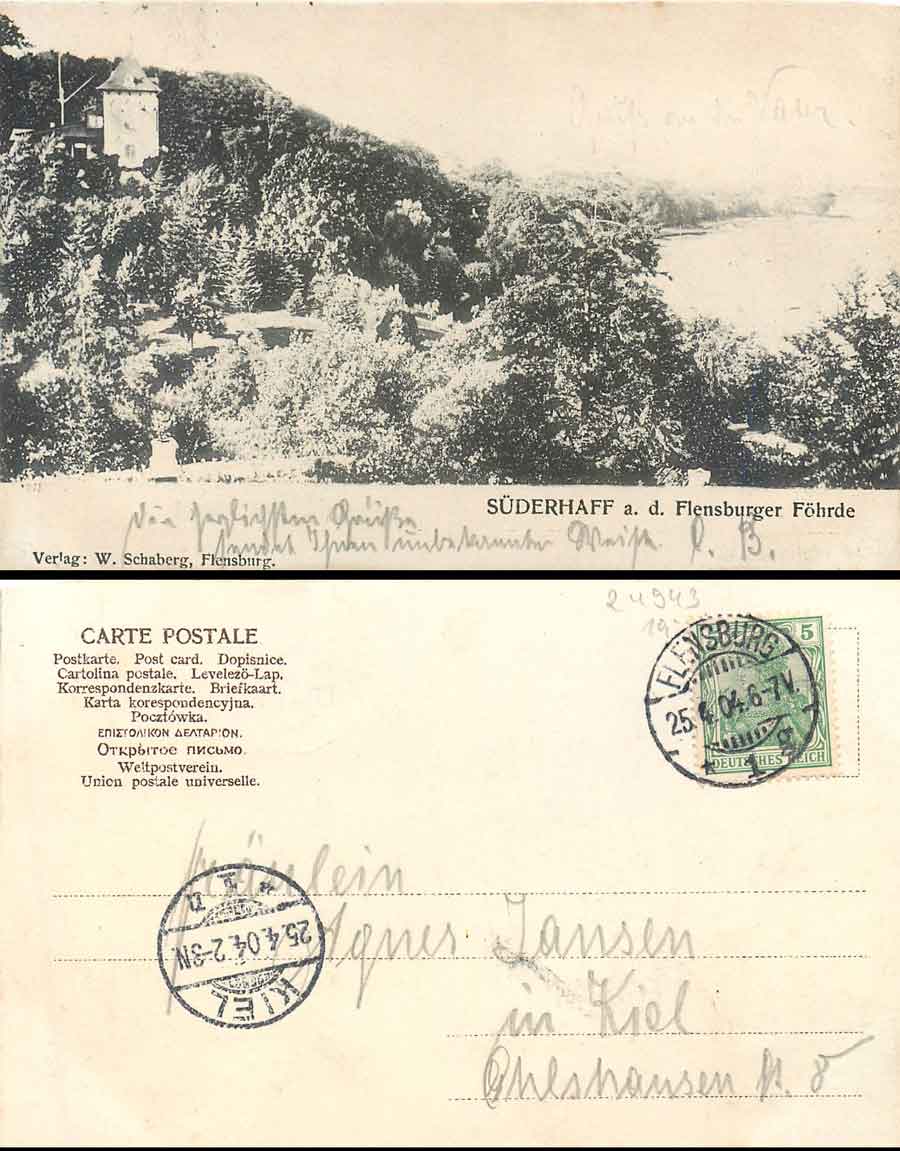 Gruß an den Vater.
SÜDERHAFF a. d. Flensburger Föhrde
die herzlichsten Grüße
sendet Ihnen unbekannter Weise
Verlag: W. Schaberg, Flensburg.
24943
19
CARTE POSTALE
Postkarte. Post card. Dopisnice.
Cartolina postale. Levelező-Lap.
Korrespondenzkarte. Briefkaart.
Karta korespondencyjna.
Pocztówka.
ΕΠΙΣΤΟΛΙΚΟΝ ΔΕΛΤΑΡΙΟΝ.
Открытое письмо.
Weltpostverein.
Union postale universelle.
5
DEUTSCHES REICH
FLENSBURG
25.4.04.6-7V.
* 1 g
Fräulein
Agnes Jansen
in Kiel
KIEL
25.4.04.2-3N